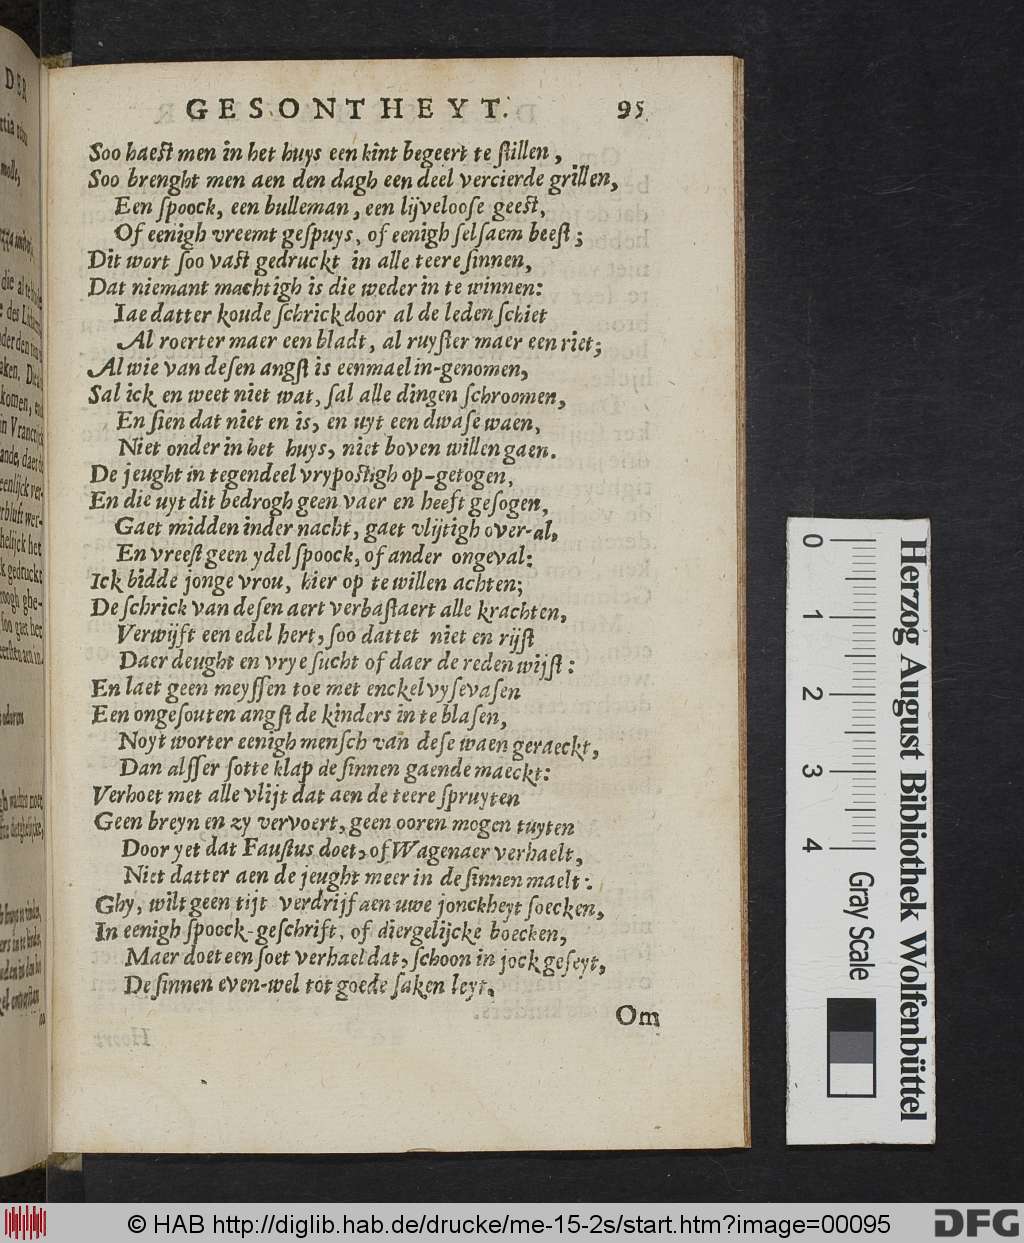 GESONTHEYT. 95
Soo haest men in het huys een kint begeert te stillen,
Soo brenght men aen den dagh een deel vercierde grillen,
Een spoock, een bulleman, een lijveloose geest,
Of eenigh vreemt gespuys, of eenigh selsaem beest;
Dit wort soo vast gedruckt in alle teere sinnen,
Dat niemant machtigh is die weder in te winnen:
Iae datter koude schrick door al de leden schiet
Al roerter maer een bladt, al ruyster maer een riet;
Al wie van desen angst is eenmael in-genomen,
Sal ick en weet niet wat, sal alle dingen schroomen,
En sien dat niet en is, en uyt een dwase waen,
Niet onder in het huys, niet boven willen gaen.
De jeught in tegendeel vrypostigh op-getogen,
En die uyt dit bedrogh geen vaer en heeft gesogen,
Gaet midden inder nacht, gaet vlijtigh over-al,
En vreest geen ydel spoock, of ander ongeval:
Ick bidde jonge vrou, hier op te willen achten;
De schrick van desen aert verbastaert alle krachten,
Verwijft een edel hert, soo dattet niet en rijst
Daer deught en vrye sucht of daer de reden wijst:
En laet geen meyssen toe met enckel vysevasen
Een ongesouten angst de kinders in te blasen,
Noyt worter eenigh mensch van dese waen geraeckt,
Dan alsser sotte klap de sinnen gaende maeckt:
Verhoet met alle vlijt dat aen de teere spruyten
Geen breyn en zy vervoert, geen ooren mogen tuyten
Door yet dat Faustus doet, of Wagenaer verhaelt,
Niet datter aen de jeught meer in de sinnen maelt:
Ghy, wilt geen tijt verdrijf aen uwe jonckheyt soecken,
In eenigh spoock-geschrift, of diergelijcke boecken,
Maer doet een soet verhael dat, schoon in jock geseyt,
De sinnen even-wel tot goede saken leyt,
Om
0 1 2 3 4
Herzog August Bibliothek Wolfenbüttel
Gray Scale
© HAB http://diglib.hab.de/drucke/me-15-2s/start.htm?image=00095
DFG